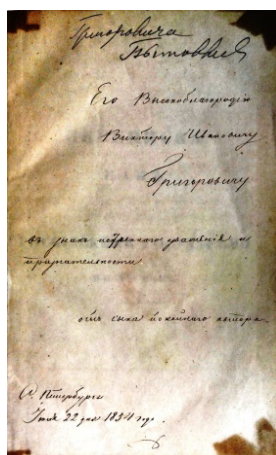 Григоровича
Его Высокоблагородію
Виктору Ивановичу
Григоровичу
въ знакъ истиннаго уваженія и
признательности
отъ сына покойнаго автора
С Петербургъ
22 дня 1854 года